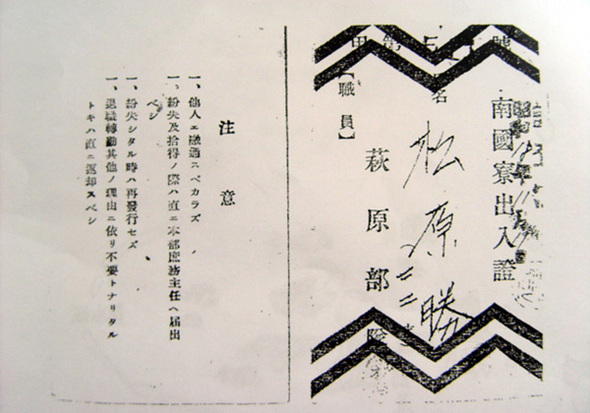 南國寮出入證
【職員】
松原勝
萩原部隊
注意
一、他人ニ融通スベカラズ
一、紛失及拾得ノ際ハ直ニ本部庶務主任ヘ届出
ベシ
一、紛失シタル時ハ再發行セズ
一、退職轉勤其他ノ理由ニ依リ不要トナリタル
トキハ直ニ返却スベシ